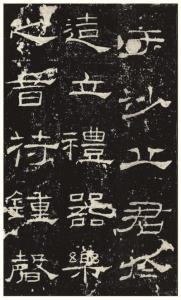 于沙丘君於
造立禮器樂
之音苻鍾磬